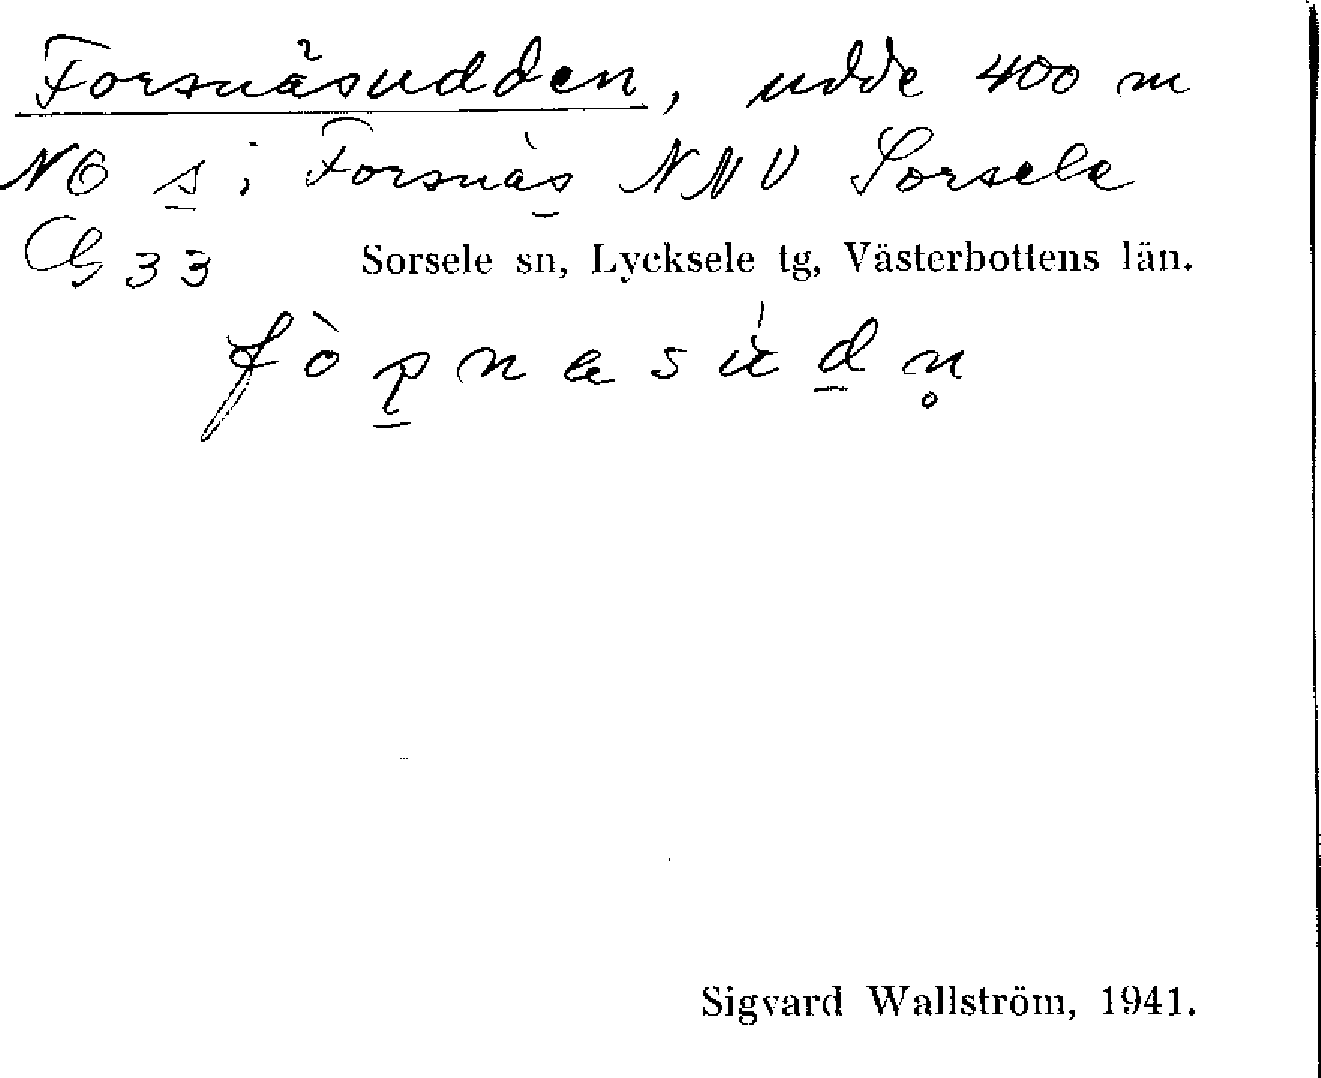 Forsnäsudden, udde 400 m
NO s i Forsnäs NNV Sorsele
G 33 Sorsele sn, Lycksele tg, Västerbottens län.
Sigvard Wallström, 1941.